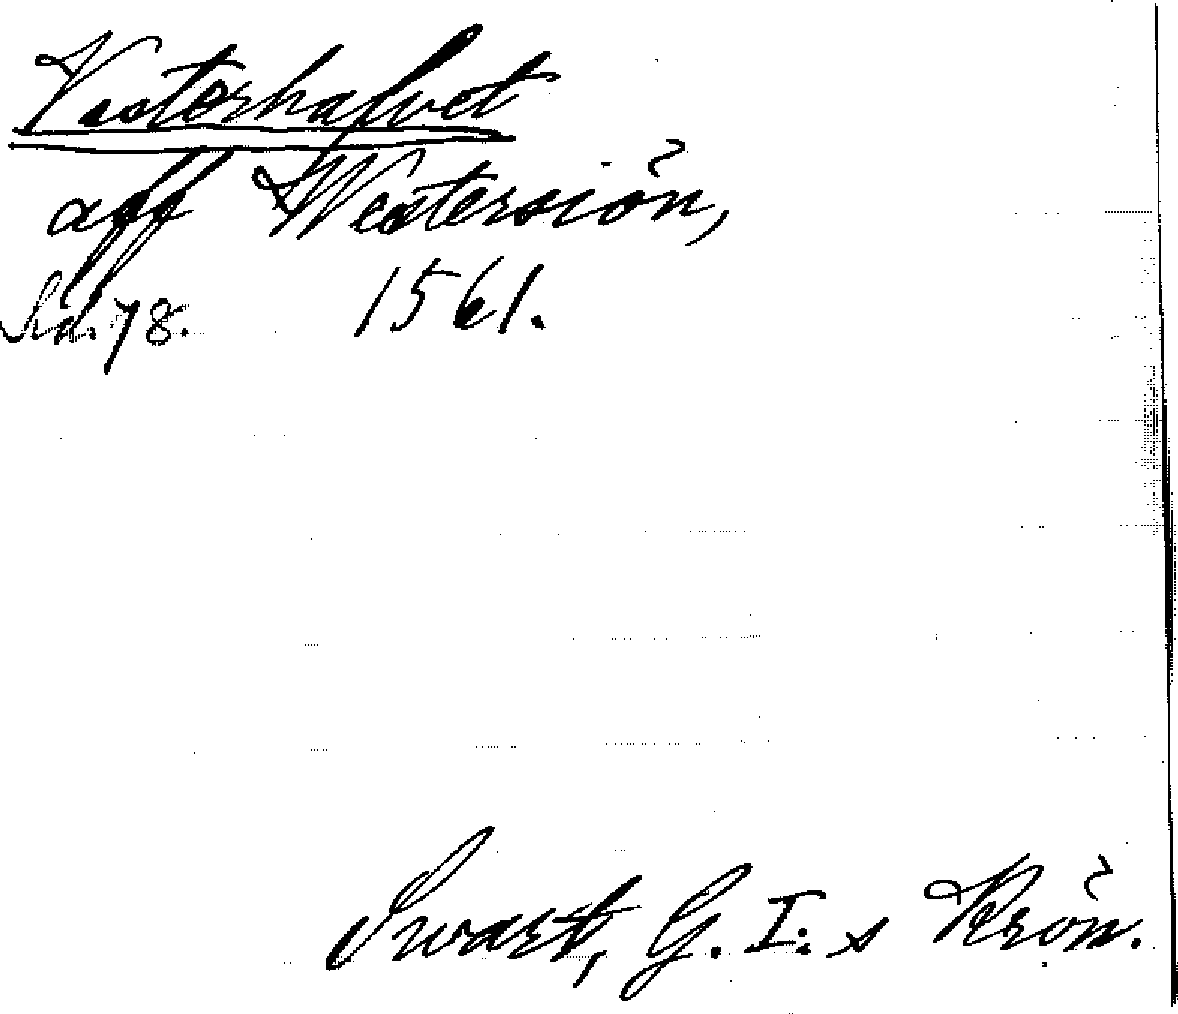 Vesterhafvet
aff Westersiön,
Sid. 78. 1561.
Swart, G. I:s Krön.